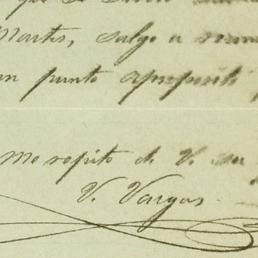 que
Martes, salgo a
un punto apropósito
me repito de V. su
V. Vargas